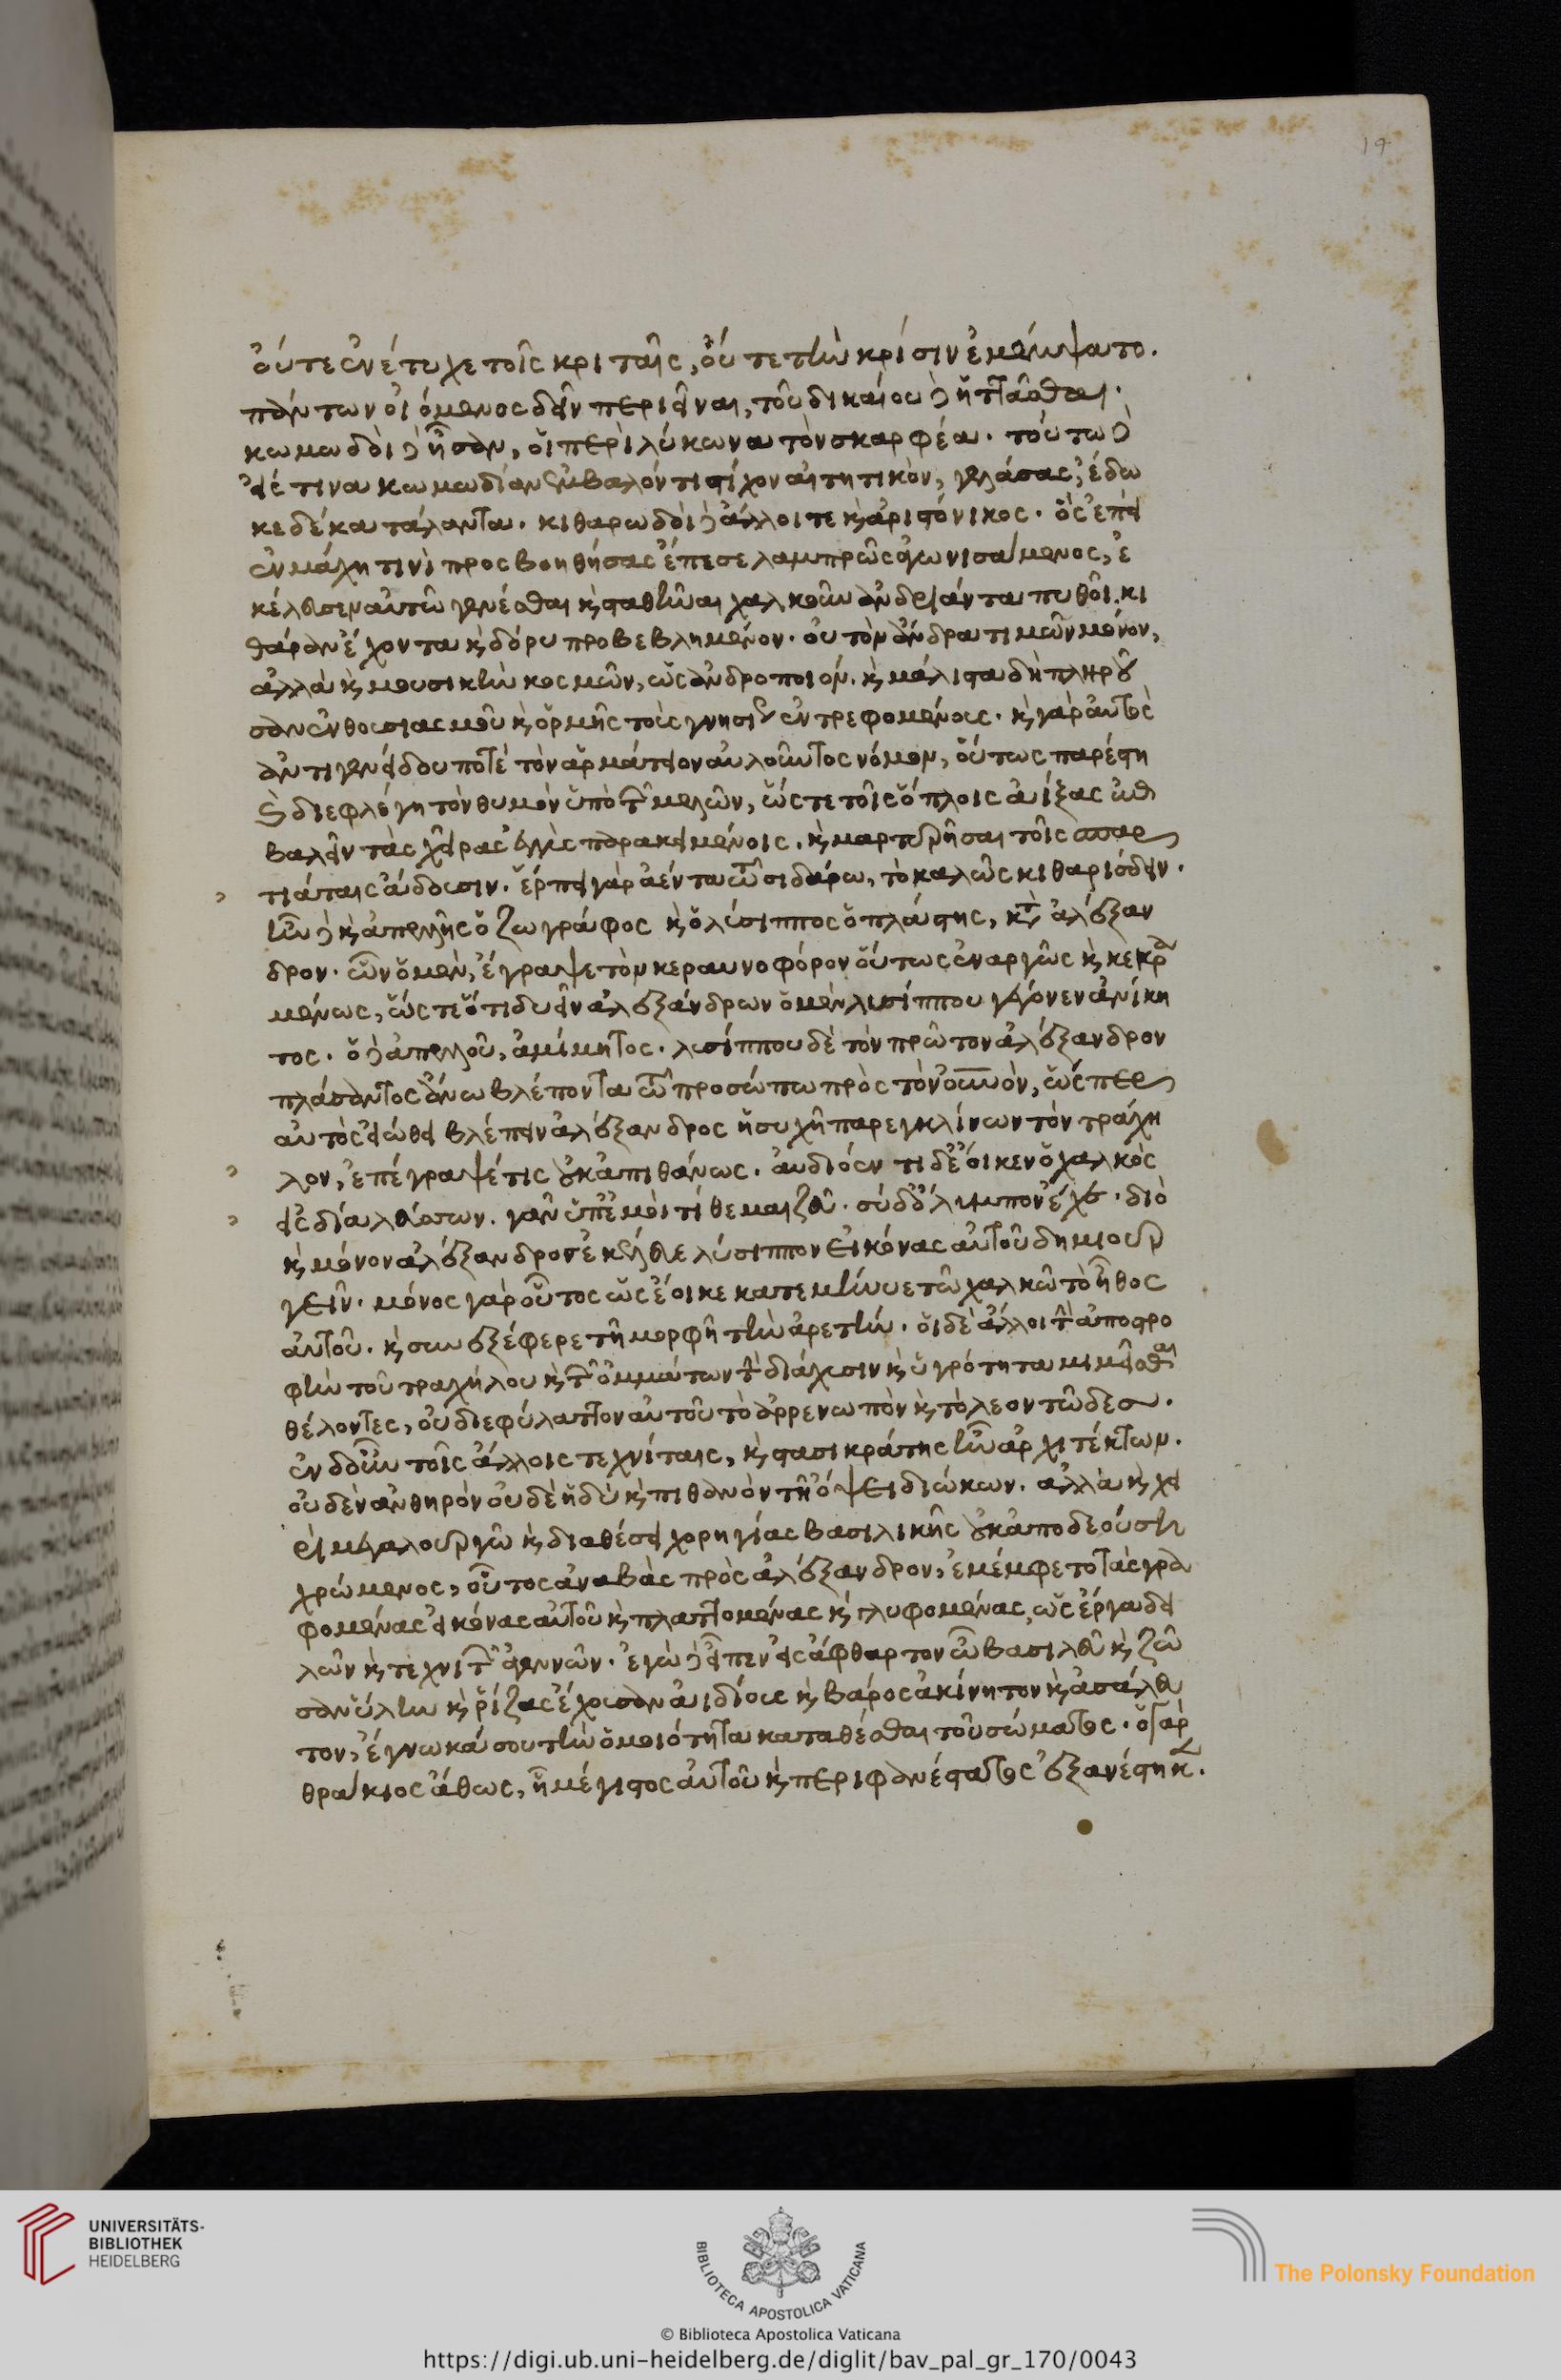 19
οὔτε ἐνέτυχε τοῖς κριταῖς, οὔτε τὴν κρίσιν ἐμέμψατο.
πάντων οἰόμενος δεῖν περιεῖναι, τοῦ δικαίου δὲ ἡττᾶσθαι.
κωμωδοὶ δὲ ἦσαν, οἱ περὶ λύκωνα τὸν σκαρφέα. τούτω δὲ
εἴς τινα κωμωδίαν ἐμβαλόντι στίχον αἰτητικὸν, γελάσας, ἔδω
κε δέκα τάλαντα. κιθαρωδοὶ δὲ ἄλλοι τε κ̀ ἀριστόνικος. ὃς ἐπεὶ
ἐν μάχη τινὶ προςβοηθήσας ἔπεσε λαμπρῶς ἀγωνισάμενος, ἐ
κέλευσεν αὐτῶ γενέσθαι κ̀ σταθῆναι χαλκοῦν ἀνδριάντα πυθοῖ. κι
θάραν ἔχοντα κ̀ δόρυ προβεβλημένον. οὐ τὸν ἄνδρα τιμῶν μόνον,
ἀλλὰ κ̀ μουσικὴν κοσμῶν, ὡς ἀνδροποιόν. κ̀ μάλιστα δὴ πληροῦ
σαν ἐνθουσιασμοῦ κ̀ ὁρμῆς τοὺς γνησίως ἐντρεφομένους. κ̀ γὰρ αὐτὸς
ἀντιγενείδου ποτὲ τὸν ἁρμάτειον αὐλοῦντος νόμον, οὕτως παρέστη
κ̀ διεφλέγη τὸν θυμὸν ὑπὸ τῶν μελῶν, ὥςτε τοῖς ὅπλοις ἀίξας ἐπι
βαλεῖν τὰς χεῖρας ἐγγὺς παρακειμένοις. κ̀ μαρτυρῆσαι τοῖς σπαρ
τιάταις ἄδουσιν. ἕρπει γὰρ ἄεντα τῶ σιδάρω, τὸ καλῶς κιθαρίσδειν.
ἦν δὲ κ̀ ἀπελλῆς ὁ ζωγράφος κ̀ ὁ λύσιππος ὁ πλάστης, κατὰ ἀλέξαν
δρον. ὧν ὁ μὲν, ἔγραψε τὸν κεραυνοφόρον οὕτως ἐναργῶς κ̀ κεκρα
μένως, ὥςτε ὅτι δυεῖν ἀλεξάνδρων ὁ μὲν λυσίππου γέγονεν ἀνίκη
τος. ὁ δὲ ἀπελλοῦ, ἀμίμητος. λυσίππου δὲ τὸν πρῶτον ἀλέξανδρον
πλάσαντος ἄνω βλέποντα τῶ προσώπω πρὸς τὸν οὐρανὸν, ὥςπερ
αὐτὸς εἰώθει βλέπειν ἀλέξανδρος ἡσυχῆ παρεγκλίνων τὸν τράχη
λον, ἐπέγραψέ τις οὐκ ἀπιθάνως. αὐδάσεντι δ᾽ ἔοικεν ὁ χαλκὸς
εἰς δία λεύσσων. γᾶν ὑπ᾽ ἐμοὶ τίθεμαι ζεῦ. σὺ δ᾽ ὄλυμπον ἔχε. διὸ
κ̀ μόνον ἀλέξανδρος ἐκέλευε λύσιππον εἰκόνας αὐτοῦ δημιουρ
γεῖν. μόνος γὰρ οὗτος ὡς ἔοικε κατεμήνυε τῶ χαλκῶ τὸ ἦθος
αὐτοῦ. κ̀ συνεξέφερε τῆ μορφῆ τὴν ἀρετήν. οἱ δὲ ἄλλοι τὴν ἀποστρο
φὴν τοῦ τραχήλου κ̀ τῶν ὀμμάτων τὴν διάχυσιν κ̀ ὑγρότητα μιμεῖσθαι
θέλοντες, οὐ διεφύλαττον αὐτοῦ τὸ ἀρρενωπὸν κ̀ τὸ λεοντῶδες.
ἐν δ᾽ οὖν τοῖς ἄλλοις τεχνίταις, κ̀ στασικράτης ἦν ἀρχιτέκτων.
οὐδὲν ἀνθηρὸν οὐδὲ ἡδὺ κ̀ πιθανὸν τῆ ὄψει διώκων. ἀλλὰ κ̀ χει
ρὶ μεγαλουργῶ κ̀ διαθέσει χορηγίας βασιλικῆς οὐκ ἀποδεούση
χρώμενος, οὗτος ἀναβὰς πρὸς ἀλέξανδρον, ἐμέμφετο τὰς γρα
φομένας εἰκόνας αὐτοῦ κ̀ πλαττομένας κ̀ γλυφομένας, ὡς ἔργα δει
λῶν κ̀ τεχνιτῶν ἀγεννῶν. ἐγὼ δὲ εἶπεν εἰς ἄφθαρτον ὦ βασιλεῦ κ̀ ζῶ
σαν ὕλην κ̀ ῥίζας ἔχουσαν ἀιδίους κ̀ βάρος ἀκίνητον κ̀ ἀσάλευ
τον, ἔγνωκά σου τὴν ὁμοιότητα καταθέσθαι τοῦ σώματος. ὁ γὰρ
θράκιος ἄθως, ἧ μέγιστος αὐτοῦ κ̀ περιφανέστατος ἐξανέστηκε.
UNIVERSITÄTS-
BIBLIOTHEK
HEIDELBERG
BIBLIOTECA APOSTOLICA VATICANA
The Polonsky Foundation
© Biblioteca Apostolica Vaticana
https://digi.ub.uni-heidelberg.de/diglit/bav_pal_gr_170/0043